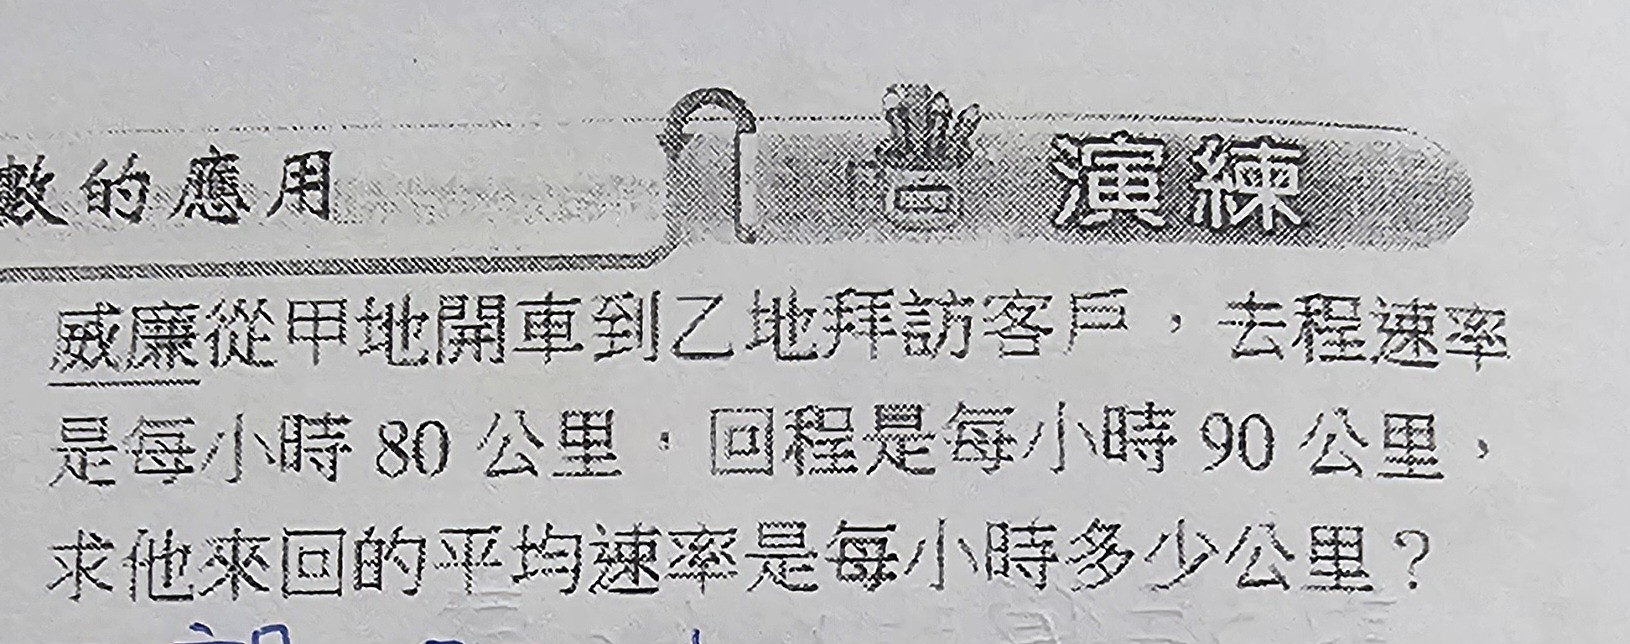 數的應用
演練
威廉從甲地開車到乙地拜訪客戶，去程速率
是每小時 80 公里，回程是每小時 90 公里，
求他來回的平均速率是每小時多少公里？